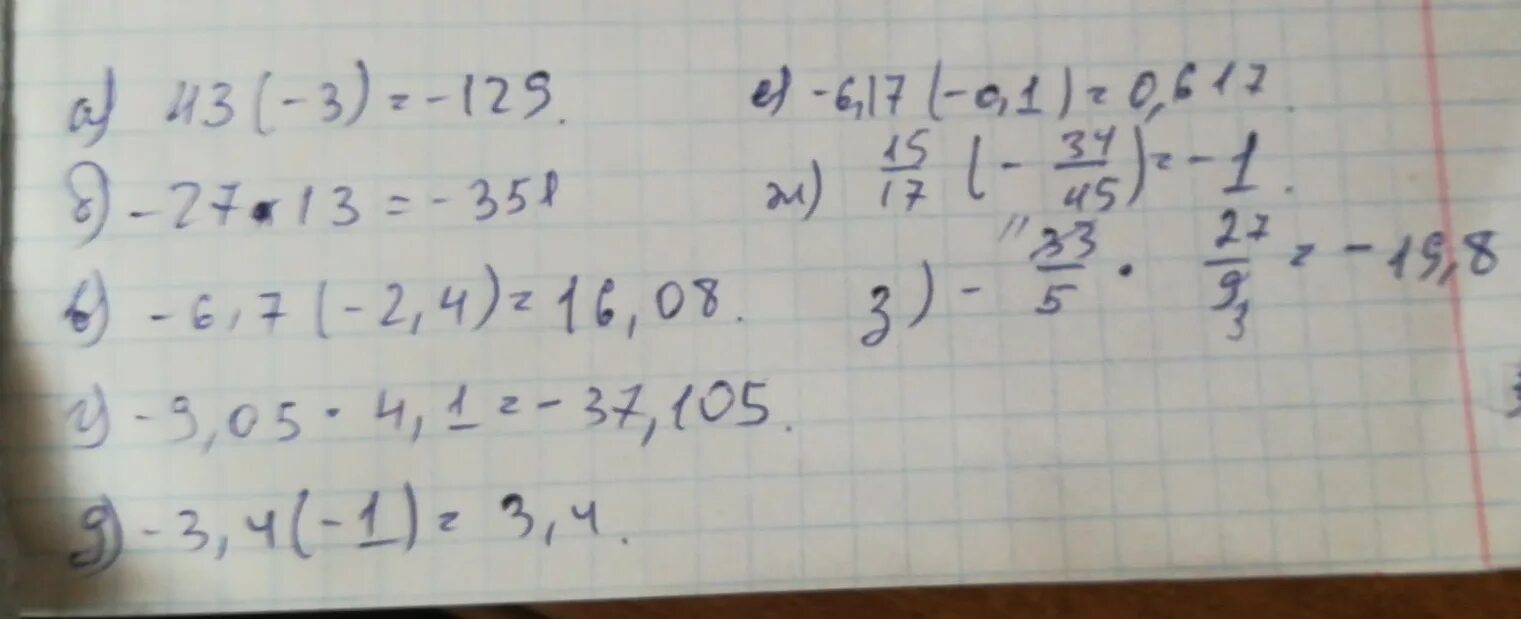 а) 43(-3) = -129.
б) -27·13 = -351
в) -6,7(-2,4) = 16,08.
г) -9,05·4,1 = -37,105.
д) -3,4(-1) = 3,4.
е) -6,17(-0,1) = 0,617.
ж) 15/17 (-34/45) = -1.
з) - 11 33/5 · 27/9 3 = -19,8